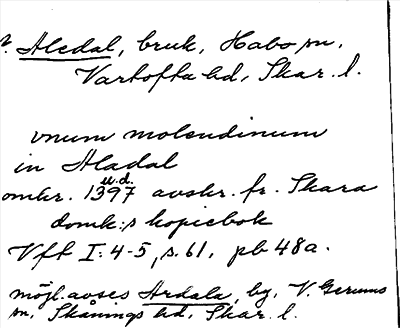 Aledal, bruk, Habo sn,
Vartofta hd, Skar. l.
vnum molendinum
in Aladal
omkr. 1397 u.d. avskr. fr. Skara
domk:s kopiebok
Vft I: 4-5, s. 61, pb 48a.
möjl. avses Ardala, by, V. Gerums
sn, Skånings hd, Skar. l.